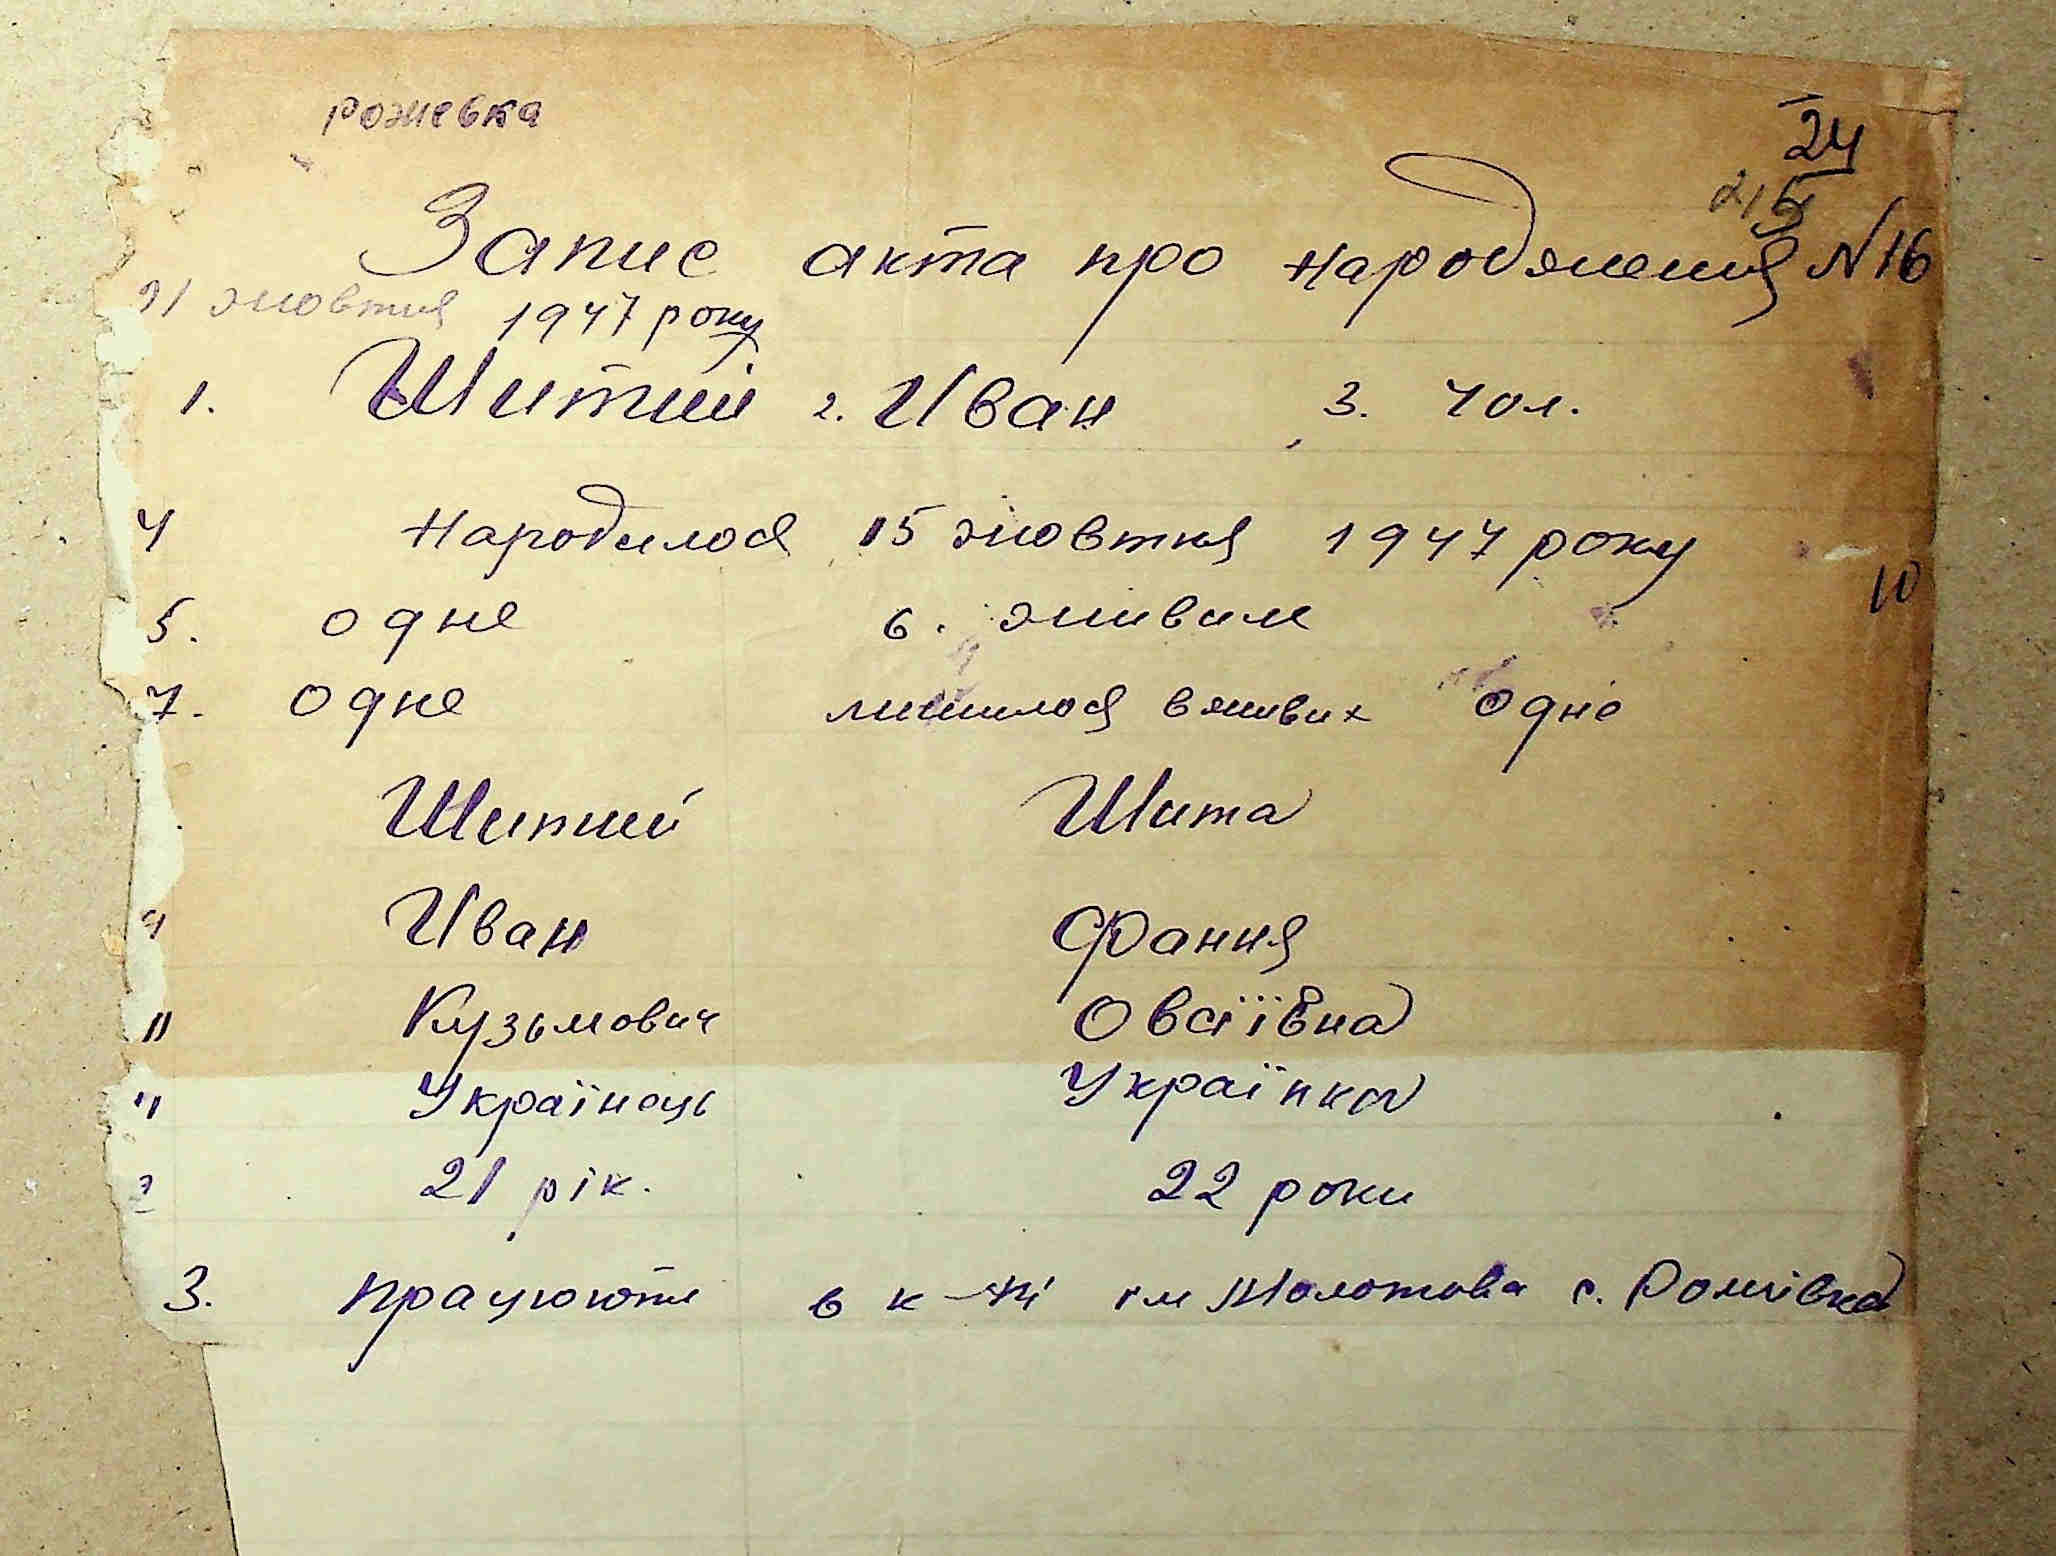 рожевка
24
215
Запис акта про народження N16
21 жовтня 1947 року
1. Шитий 2. Иван 3. Чол.
4 народилося 15 жовтня 1947 року
10
5. одне 6. живим
7. Одне лишилося вживих одно
Шитий Шита
Иван Фання
Кузьмович Овсіївна
Українець Українка
21 рік. 22 роки
3. працюють в к-ті ім Молотова с. Рожівка